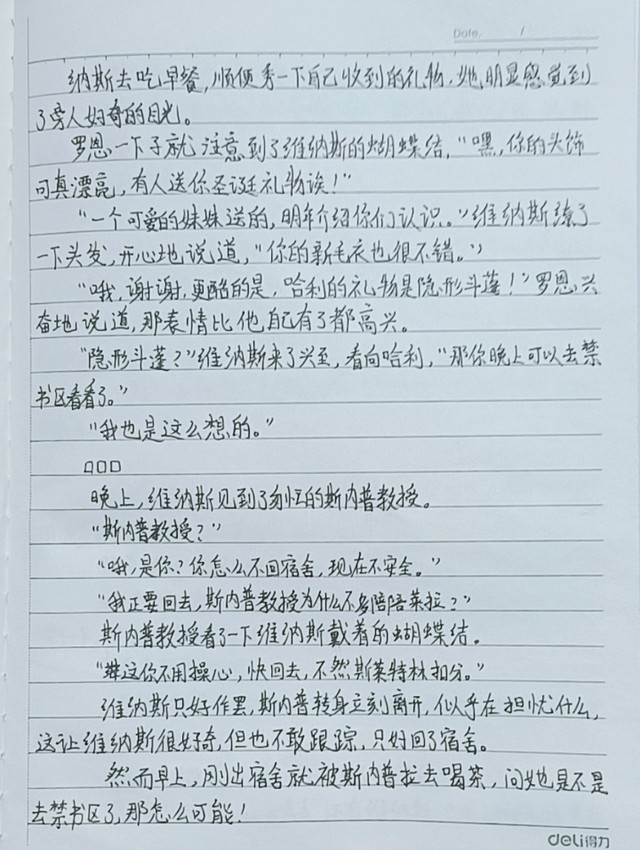 Date.   /
纳斯去吃早餐，顺便秀一下自己收到的礼物，她明显感觉到
了旁人好奇的目光。
罗恩一下子就注意到了维纳斯的蝴蝶结，“嘿，你的头饰
可真漂亮，有人送你圣诞礼物诶！”
“一个可爱的妹妹送的，明年介绍你们认识。”维纳斯撩了
一下头发，开心地说道，“你的新毛衣也很不错。”
“哦，谢谢，更酷的是，哈利的礼物是隐形斗蓬！”罗恩兴
奋地说道，那表情比他自己有了都高兴。
“隐形斗蓬？”维纳斯来了兴至，看向哈利，“那你晚上可以去禁
书区看看了。”
“我也是这么想的。”
口口口
晚上，维纳斯见到了匆忙的斯内普教授。
“斯内普教授？”
“哦，是你？你怎么不回宿舍，现在不安全。”
“我正要回去，斯内普教授为什么不多陪陪莱拉？”
斯内普教授看了一下维纳斯戴着的蝴蝶结。
“这你不用操心，快回去，不然斯莱特林扣分。”
维纳斯只好作罢，斯内普转身立刻离开，似乎在担忧什么，
这让维纳斯很好奇，但也不敢跟踪，只好回了宿舍。
然而早上，刚出宿舍就被斯内普拉去喝茶，问她是不是
去禁书区了，那怎么可能！
deli得力